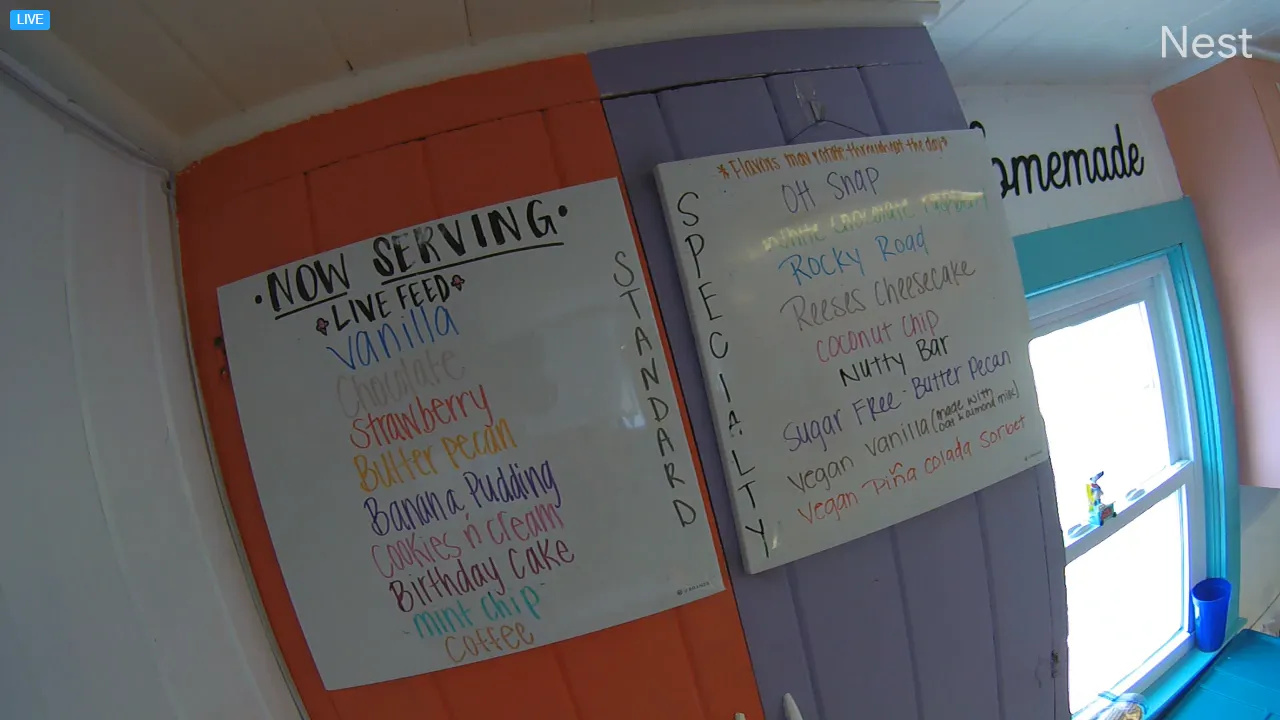 LIVE
Nest
•NOW SERVING•
LIVE FEED
vanilla
Chocolate
Strawberry
Butter pecan
Banana Pudding
Cookies n' Cream
Birthday Cake
mint chip
coffee
STANDARD
*Flavors may rotate throughout the day*
SPECIALTY
OH Snap
White Chocolate raspberry
Rocky Road
Reeses Cheesecake
coconut chip
Nutty Bar
Sugar Free-Butter Pecan
vegan vanilla (made with oat & almond milk)
vegan Piña colada sorbet
Homemade